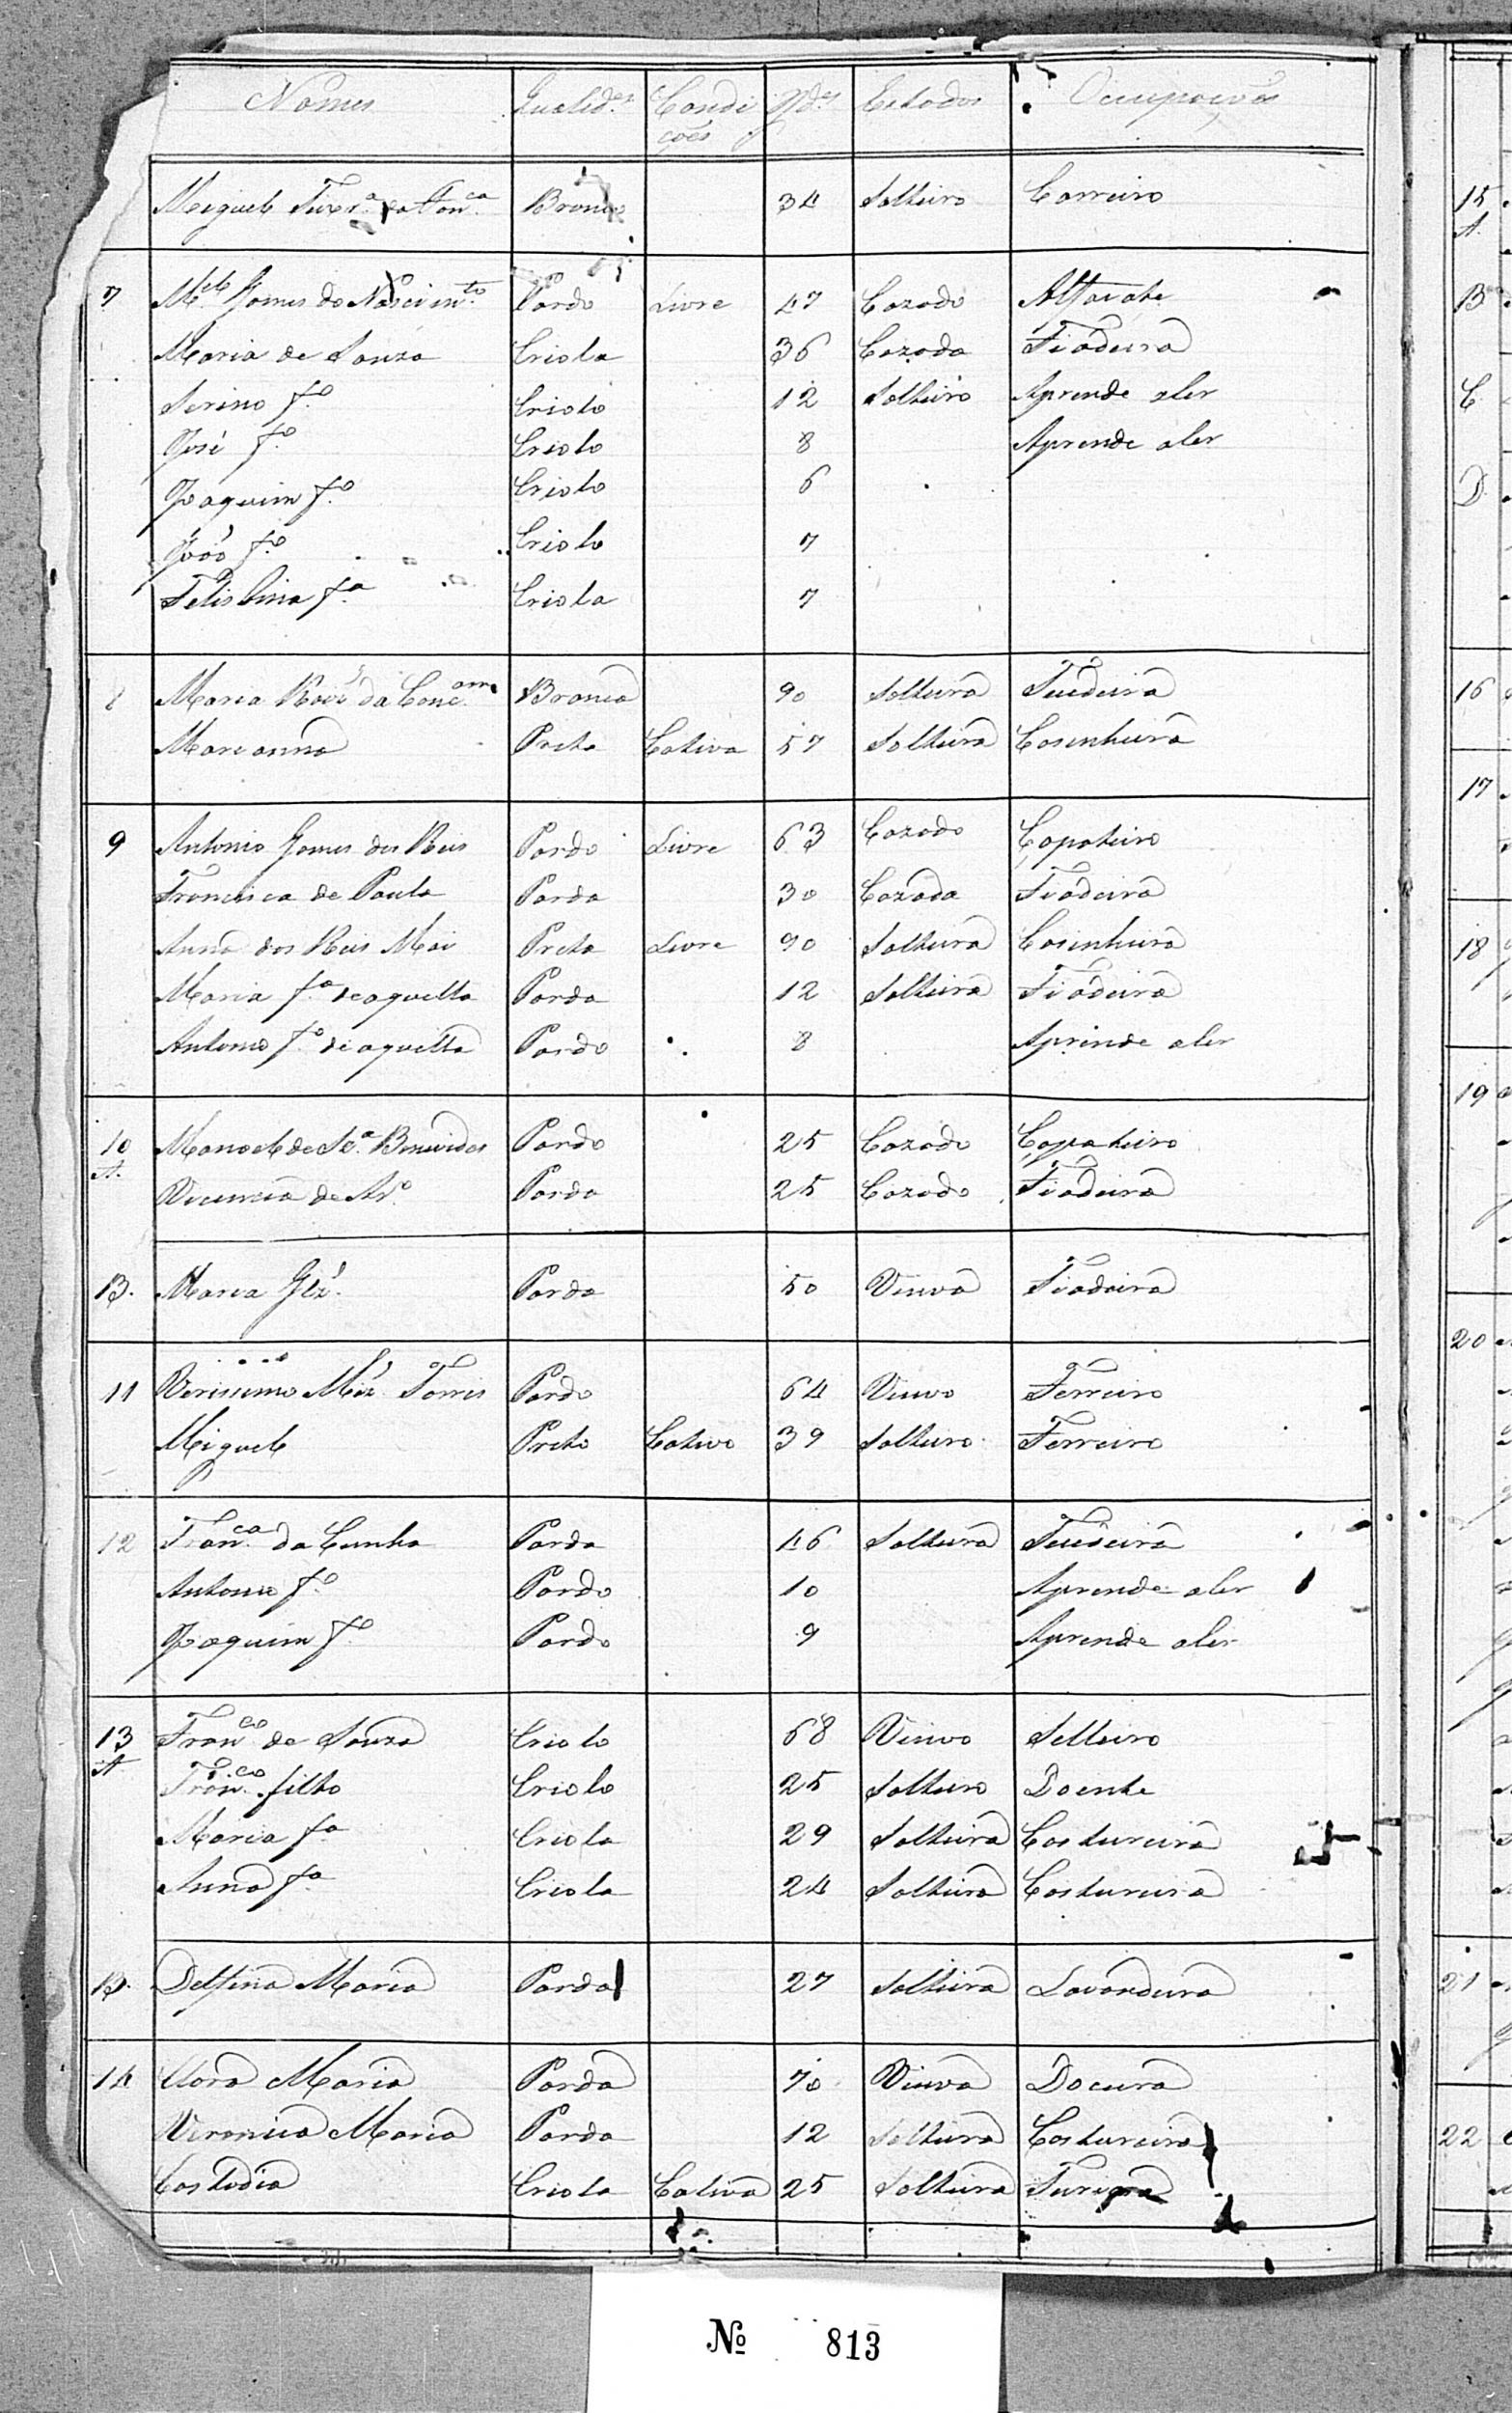 Nomes Qualid.es Condições Id.es Estados Occupaçoẽs
Miguel Ferr.a da Fon.ca Branco 34 Solteiro Carreiro
7 M.el Gomes do Nascim.to Pardo Livre 47 Cazado Alfaiate
Maria de Souza Criola 36 Cazada Fiadeira
Serino f.o Criolo 12 Solteiro Aprende aler
José f.o Criolo 8 Aprende aler
Joaquim f.o Criolo 6
João f.o Criolo 7
Felisbina f.a Criola 7
8 Maria Roiz da Conc.am Branca 90 Solteira Tecedeira
Marianna Preta Cativa 57 Solteira Cosinheira
9 Antonio Gomes dos Reis Pardo Livre 63 Cazado Çapateiro
Francisca de Paula Parda 30 Cazada Fiadeira
Anna dos Reis Mai Preta Livre 90 Solteira Cosinheira
Maria f.a deaquella Parda 12 Solteira Fiadeira
Antonio f.o de aquella Pardo 8 Aprende aler
10 Manoel de Sz.a Benevides Pardo 25 Cazado Çapateiro
A. Vicencia de Ar.o Parda 25 Cazado Fiadeira
B. Maria Glz. Parda 50 Viuva Fiadeira
11 Verissimo Miz Torres Pardo 64 Viuvo Ferreiro
Miguel Preto Cativo 39 Solteiro Ferreiro
12 Fran.ca da Cunha Parda 46 Solteira Tecedeira
Antonio f.o Pardo 10 Aprende aler
Joaquim f.o Pardo 9 Aprende aler
13 Fran.co de Souza Criolo 68 Viuvo Selleiro
A Fran.co filho Criolo 25 Solteiro Doente
Maria f.a Criola 29 Solteira Costureira
Anna f.a Criola 24 Solteira Costureira
B. Delfina Maria Parda 27 Solteira Lavandeira
14 Clara Maria Parda 70 Viuva Doceira
Veronica Maria Parda 12 Solteira Costureira
Costodia Criola Cativa 25 Solteira
15
A.
B
C
D.
16
17
18
19
20
21
22
№ 813